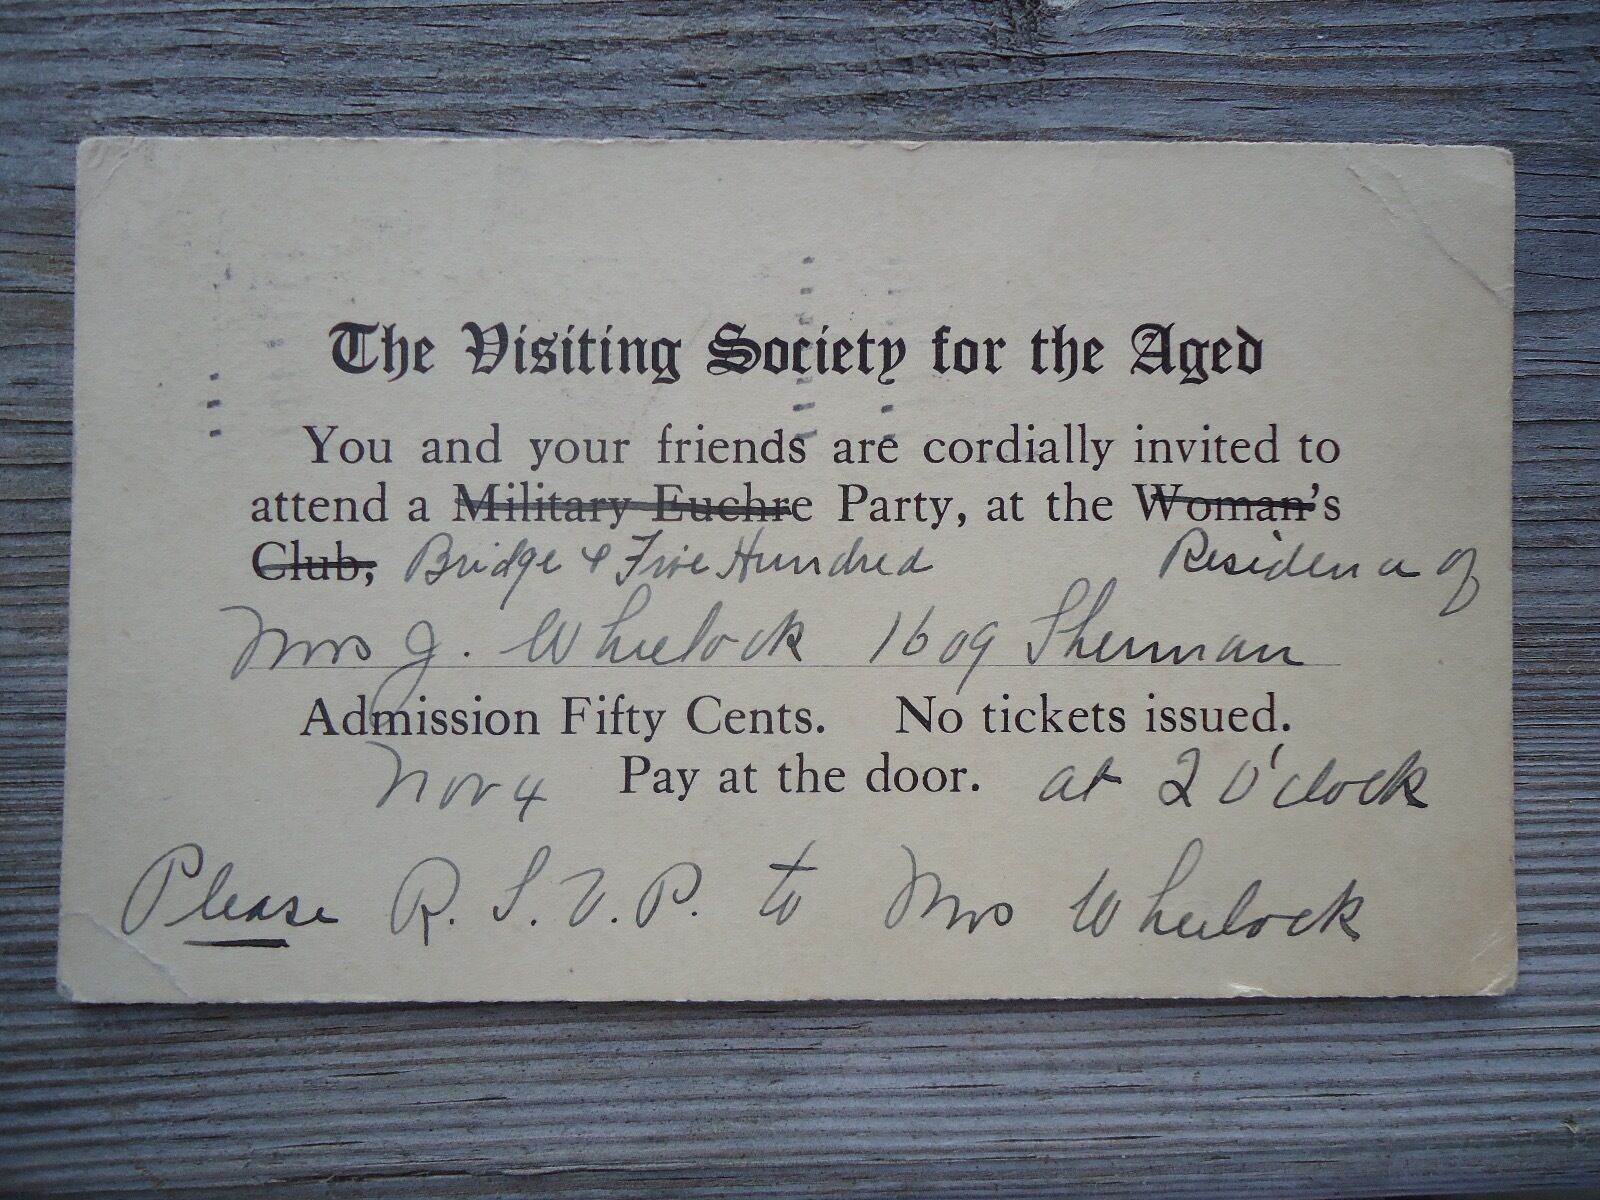 The Visiting Society for the Aged
You and your friends are cordially invited to
attend a Military Euchre Party, at the Woman's
Club, Bridge & Five Hundred Residence of
Mrs J. Wheelock 1609 Sherman
Admission Fifty Cents. No tickets issued.
Nov 4 Pay at the door. at 2 O'clock
Please R. S. V. P. to Mrs Wheelock